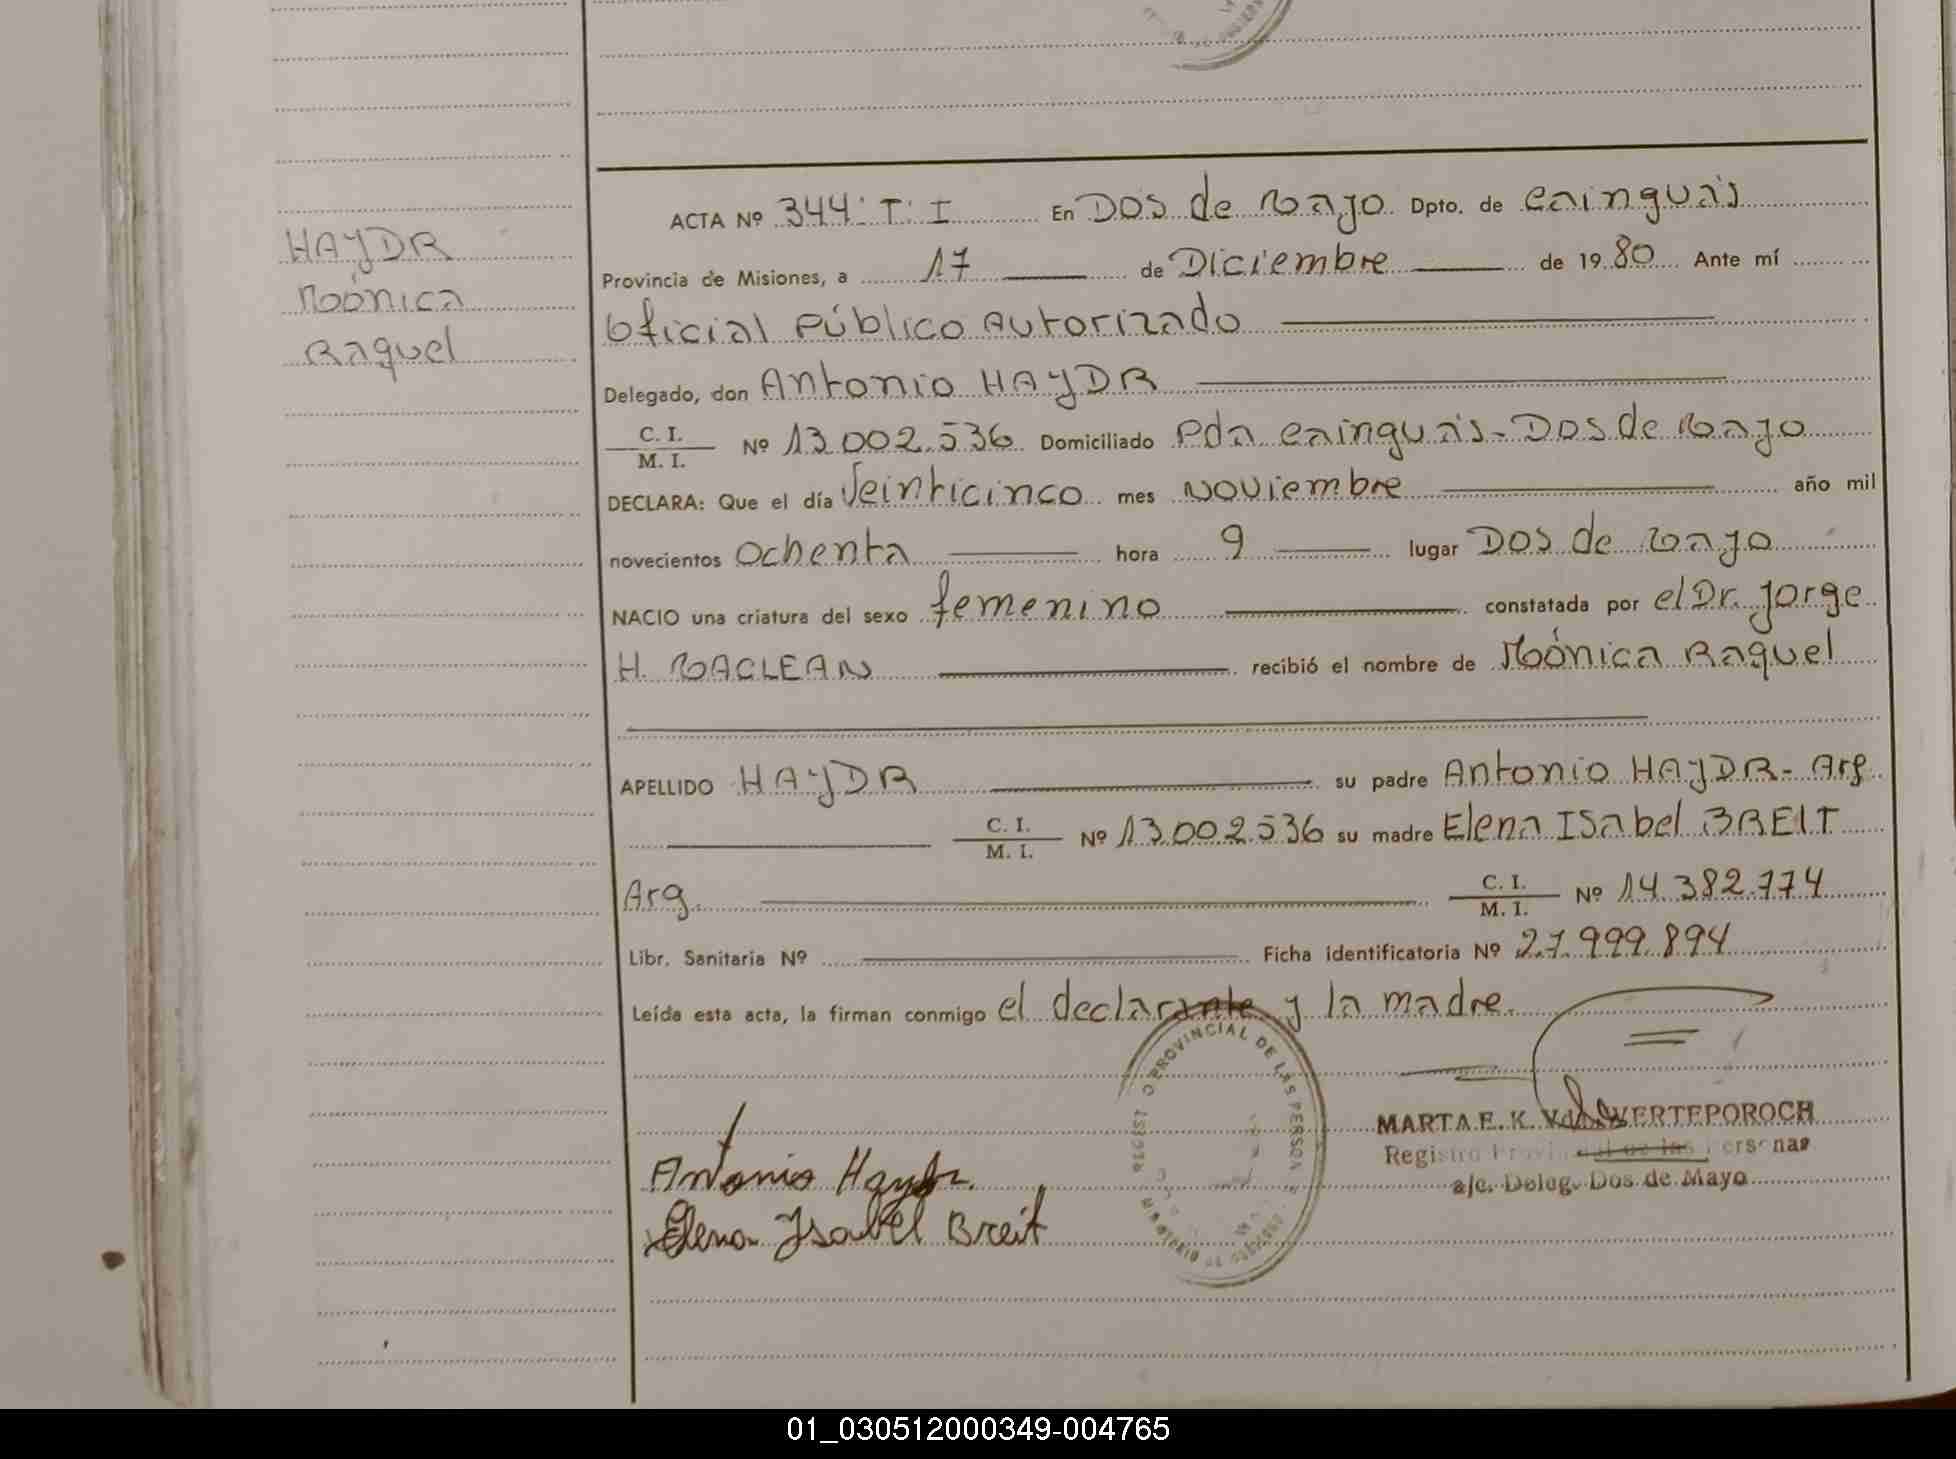 HAYDR
Mónica
Raquel
ACTA Nº 344. T. I En DOS de Mayo Dpto. de Cainguás
Provincia de Misiones, a 17 de Diciembre de 1980 Ante mí
Oficial Público Autorizado
Delegado, don Antonio HAYDR
C. I. / M. I. Nº 13.002.536 Domiciliado Pda Cainguás-Dos de Mayo
DECLARA: Que el día Veinticinco mes Noviembre año mil
novecientos Ochenta hora 9 lugar Dos de Mayo
NACIO una criatura del sexo femenino constatada por el Dr. Jorge
H. MACLEAN recibió el nombre de Mónica Raquel
APELLIDO HAYDR su padre Antonio HAYDR- Arg
C. I. / M. I. Nº 13.002.536 su madre Elena Isabel BREIT
Arg. C. I. / M. I. Nº 14.382.774
Libr. Sanitaria Nº Ficha identificatoria Nº 27.999.894
Leída esta acta, la firman conmigo el declarante y la madre.
PROVINCIAL DE LAS PERSON
MARTA E. K. Vda. de WERTEPOROCH
Registro Provincial de las Personas
a/c. Deleg. Dos de Mayo
Antonio Haydr.
Elena Isabel Breit
01_030512000349-004765